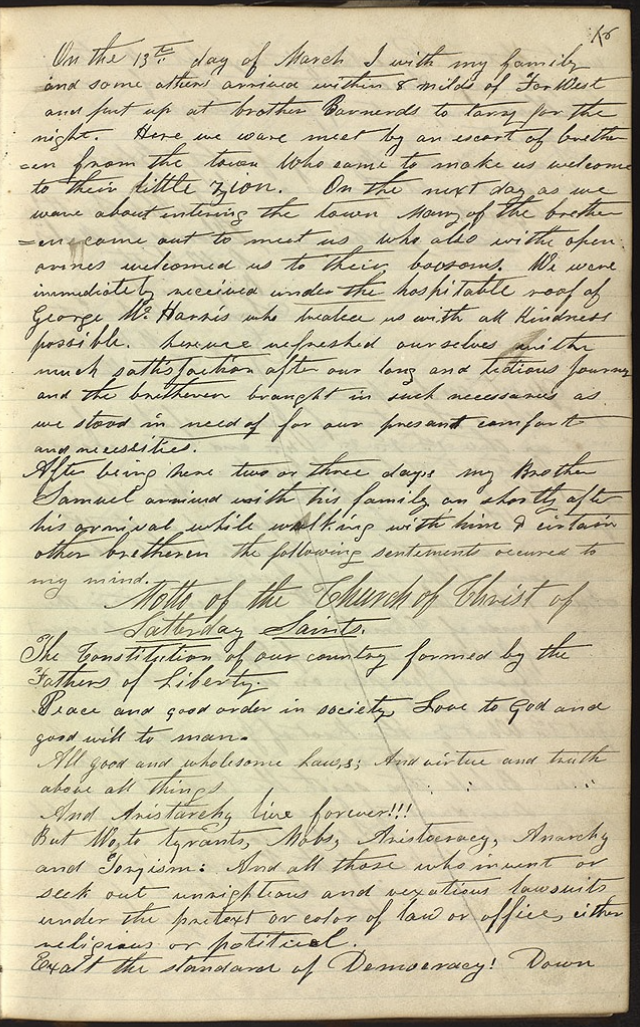 On the 13th day of March I with my family
and some others arrived within 8 milds of Far West
and put up at brother Barnerds to tarry for the
night. Here we ware meet by an escort of brether
=en from the town Who came to make us welcome
to their little Zion. On the next day as we
ware about entering the town Many of the brether
=en came out to meet us who also with open
armes welcomed us to their boosoms. We were
immediately received under the hospitable roof of
George W. Harris who treated us with all kindness
possible. here we refreshed ourselves with
much satisfaction after our long and tedious journey
and the bretheren braught in such necessaries as
we stood in need of for our presant comfort
and necessities.
After being here two or three days my Brother
Samuel arrived with his family an shortly after
his arrival while walking with him & cirtain
other bretheren the following sentements occured to
my mind.
Motto of the Church of Christ of
Latterday Saints.
The Constitution of our country formed by the
Fathers of Liberty.
Peace and good order in society Love to God and
good will to man.
All good and wholesome Laws; And virtue and truth
above all things
And Aristarchy live forever!!!
But Wo, to tyrants, Mobs, Aristocracy, Anarchy
and Toryism: And all those who invent or
seek out unrightious and vexatious lawsuits
under the pretext or color of law or office, either
religious or political.
Exalt the standard of Democracy! Down